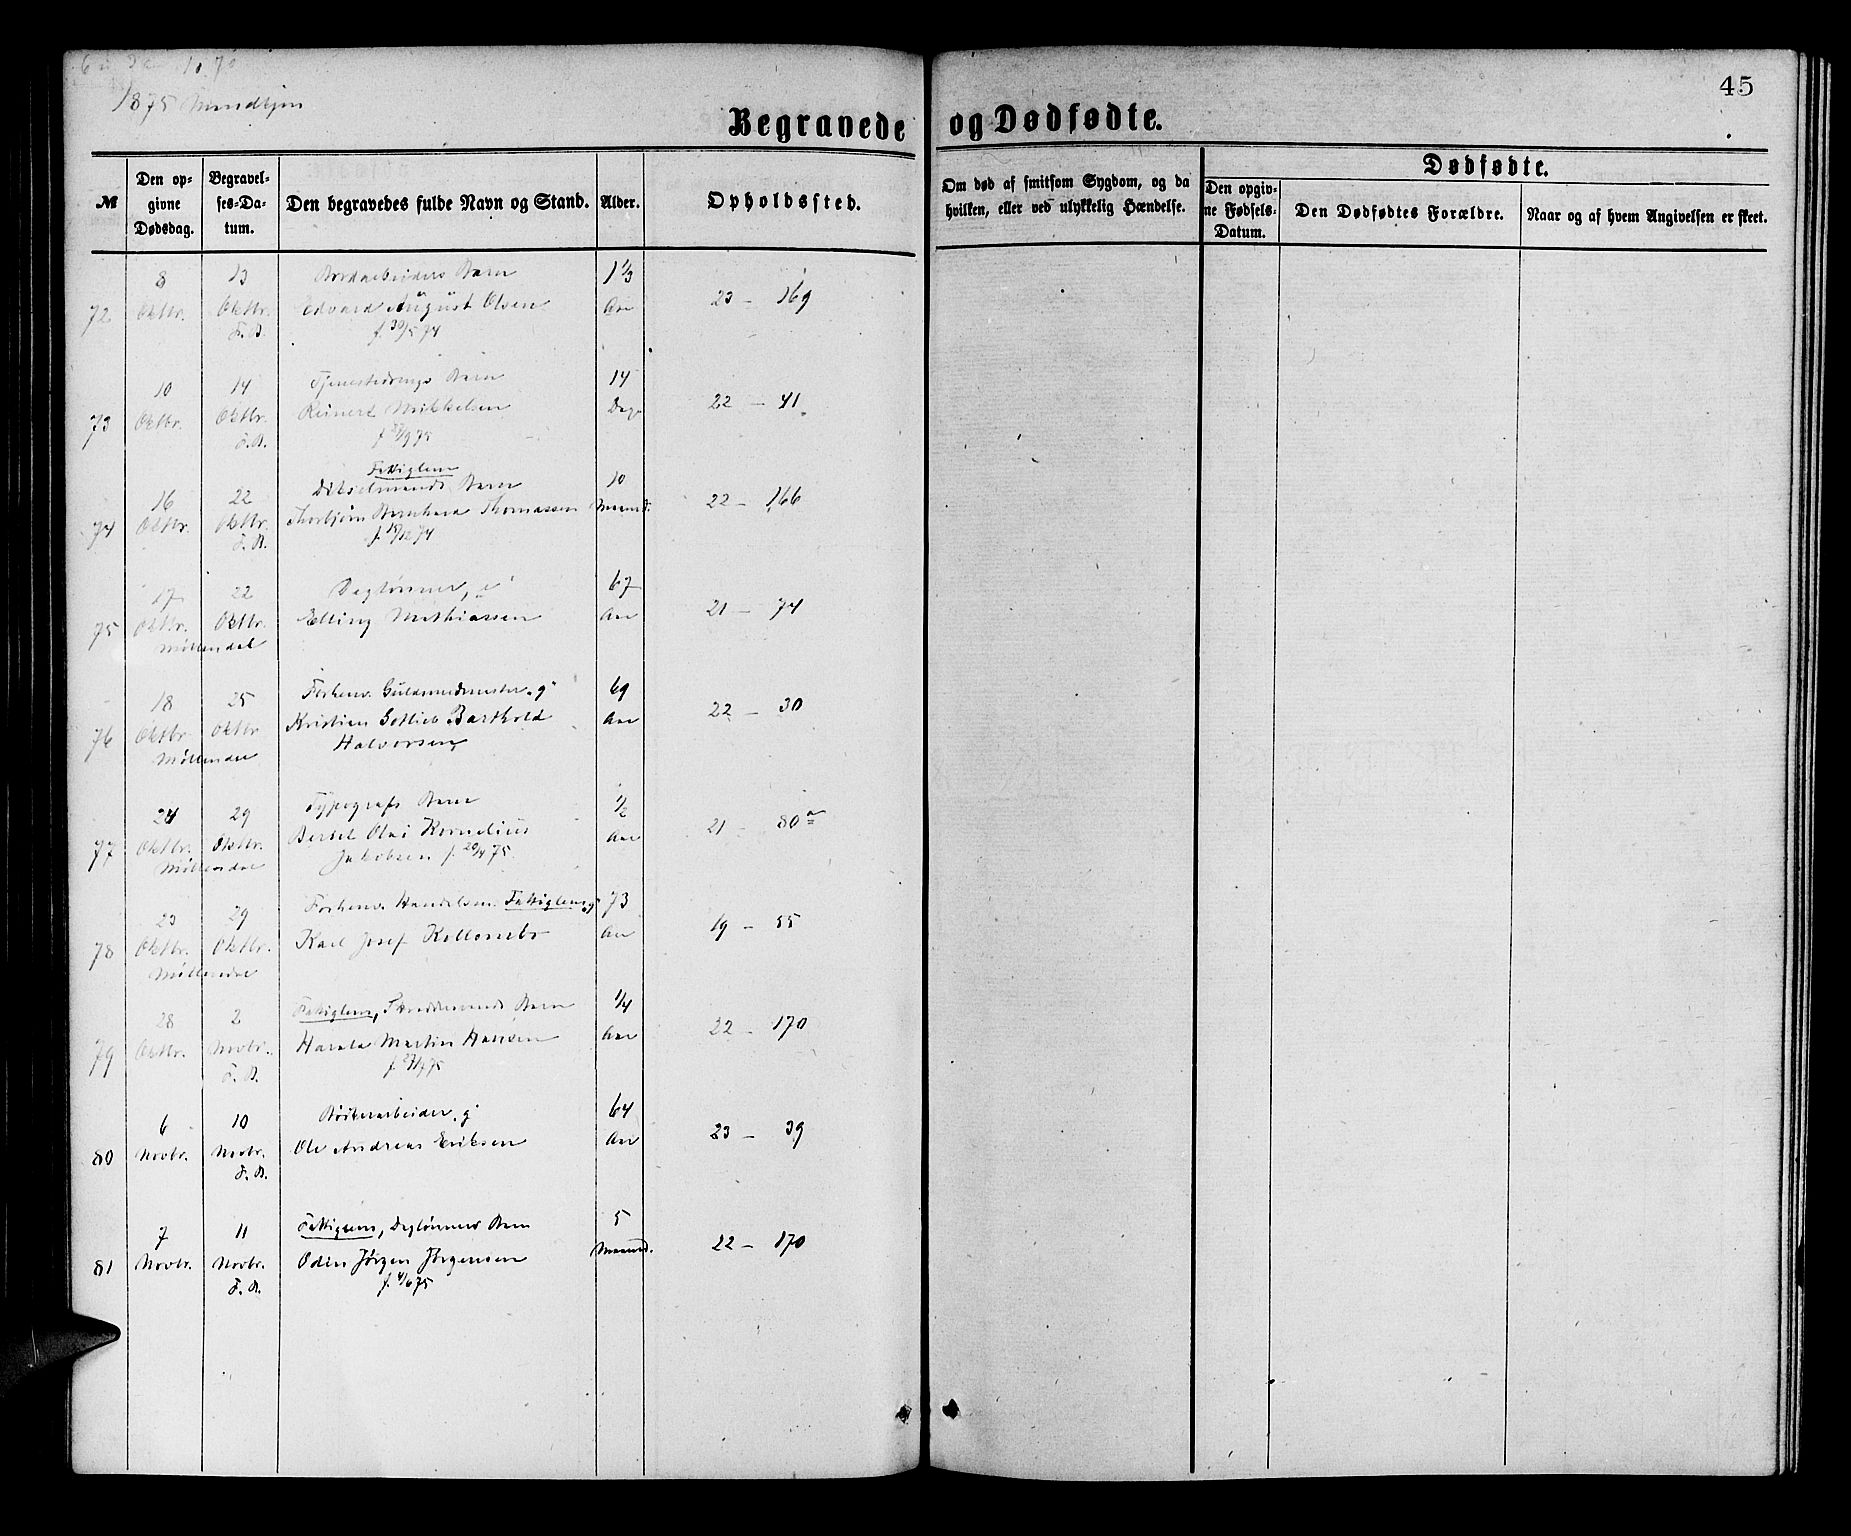 1875 Mandkjøn
45
Begravede og Dødfødte.
№
Den opgivne Dødsdag.
Begravelses-Datum.
Den begravedes fulde Navn og Stand.
Alder.
Opholdssted.
Om død af smitsom Sygdom, og da hvilken, eller ved ulykkelig Hændelse.
Dødfødte.
Den opgivne Fødsels-Datum.
Den Dødfødtes Forældre.
Naar og af hvem Angivelsen er skeet.
8 13 Barn 1 1/3
72 Oktbr. Oktbr. Edvard August Olsen Aar 23 – 169
F. B. f. 30/5 74
10 14 Tjenestedrengs Barn 14
73 Oktbr. Oktbr. Reinert Mikkelsen Dage 22 – 41
F. B. 75
Fattiglem
16 22 Barn 10
74 Oktbr. Oktbr. Thorbjørn Bernhard Thomassen Maaned. 22 – 166
F. B. f. 18/12 74
17 22 Daglønner, 67
75 Oktbr. Oktbr. Elling Mathiassen Aar 21 – 74
Møllendal
18 25 Forhenv. Guldsmedmester "g" 69
76 Oktbr Oktbr Kristian Gotlieb Barthold Aar 22 – 30
Møllendal Halvorsen
24 29 Typografs Barn 1/2
77 Oktbr. Oktbr. Bertel Olai Kornelius Aar 21 – 80 a
Møllendal Jakobsen f. 20/4 75.
23 29 Forhenv. Handelsm. Fattiglem "g" 73
78 Oktbr. Oktbr. Karl Josef Aar 19 – 55
Møllendal
28 2 Fattiglem, Barn 1/4
79 Oktbr. Novbr. Harald Martin Hansen Aar 22 – 170
F. B. f. 27/7 75
6 10 "g" 64
80 Novbr. Novbr. Ole Andreas Eriksen Aar 23 – 39
F. B.
7 11 Fattiglem, Daglønners Barn 5
81 Novbr. Novbr. Odin Jørgen Jørgensen Maaned. 22 – 170
F. B. f. 4/6 75